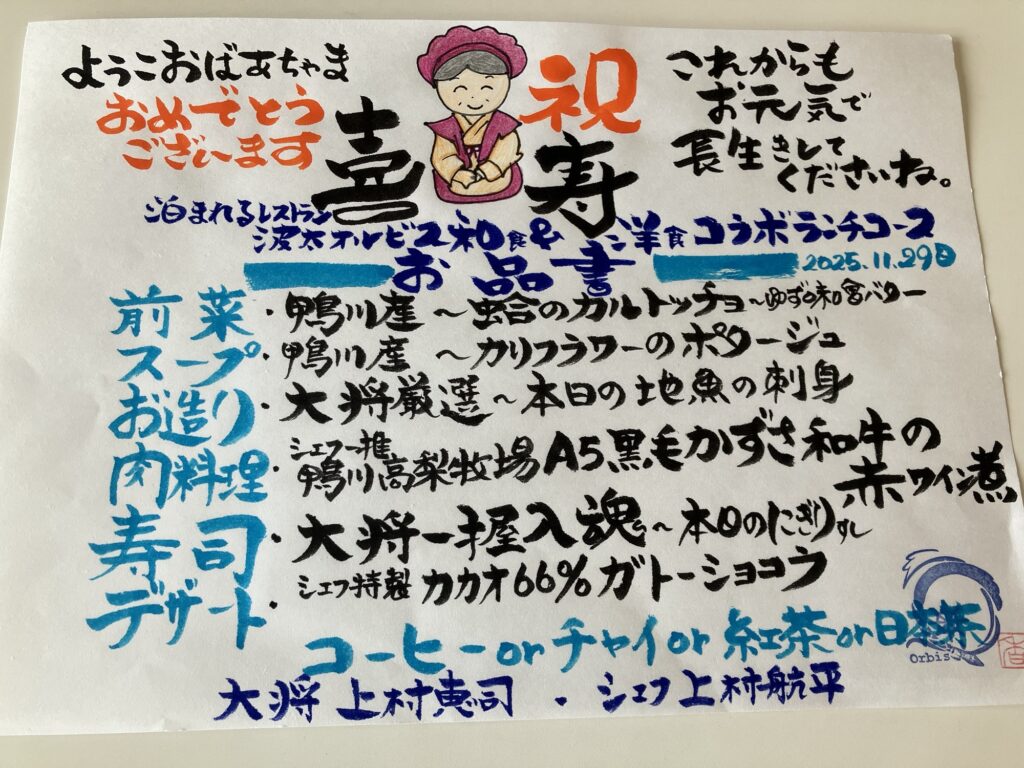 ようこおばあちゃま
おめでとう
ございます
祝
喜寿
これからも
お元気で
長生きして
くださいね。
泊まれるレストラン
波太オルビス和食&洋食コラボランチコース
お品書
2025.11.29
前菜・鴨川産〜蛤のカルトッチョ〜ゆずの和風バター
スープ・鴨川産〜カリフラワーのポタージュ
お造り・大将厳選〜本日の地魚の刺身
肉料理・シェフ推 鴨川高梨牧場A5黒毛かずさ和牛の
赤ワイン煮
寿司・大将一握入魂〜本日のにぎりすし
デザート・シェフ特製 カカオ66%ガトーショコラ
コーヒー or チャイ or 紅茶 or 日本茶
Orbis
大将 上村恵司 . シェフ 上村航平